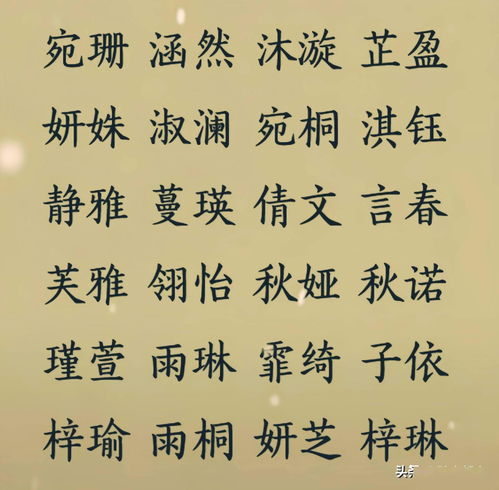 宛珊 涵然 沐漩 芷盈
妍姝 淑澜 宛桐 淇钰
静雅 蔓瑛 倩文 言春
芙雅 翎怡 秋娅 秋诺
瑾萱 雨琳 霏绮 子依
梓瑜 雨桐 妍芝 梓琳
头条